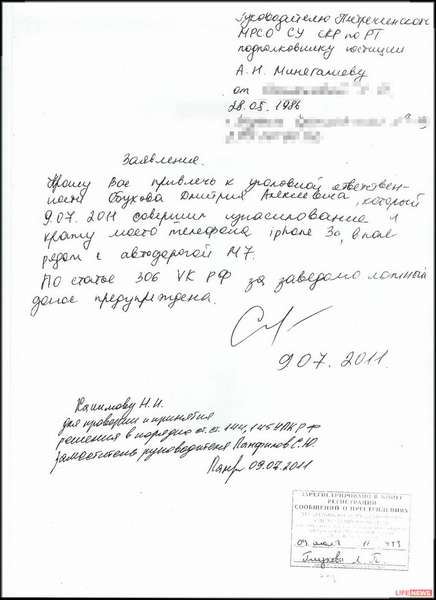 Руководителю Пестречинского
МРСО СУ СКР по РТ
подполковнику юстиции
А.Н. Мингалиеву
от
28.05.1986
Заявление.
Прошу Вас привлечь к уголовной ответствен-
ности Обухова Дмитрия Алексеевича, который
9.07.2011 совершил изнасилование и
кражу моего телефона iphone 3G, в поле
рядом с автодорогой М7.
По статье 306 УК РФ за заведомо ложный
донос предупреждена.
9 07. 2011
Каримову Н.И.
для проверки и принятия
решения в порядке ст.ст. 144, 145 УПК РФ
заместитель руководителя Панфилов С.Ю.
09.07.2011
ЗАРЕГИСТРИРОВАНО В КНИГЕ
РЕГИСТРАЦИИ
СООБЩЕНИЙ О ПРЕСТУПЛЕНИЯХ
09 июля 11
LIFENEWS